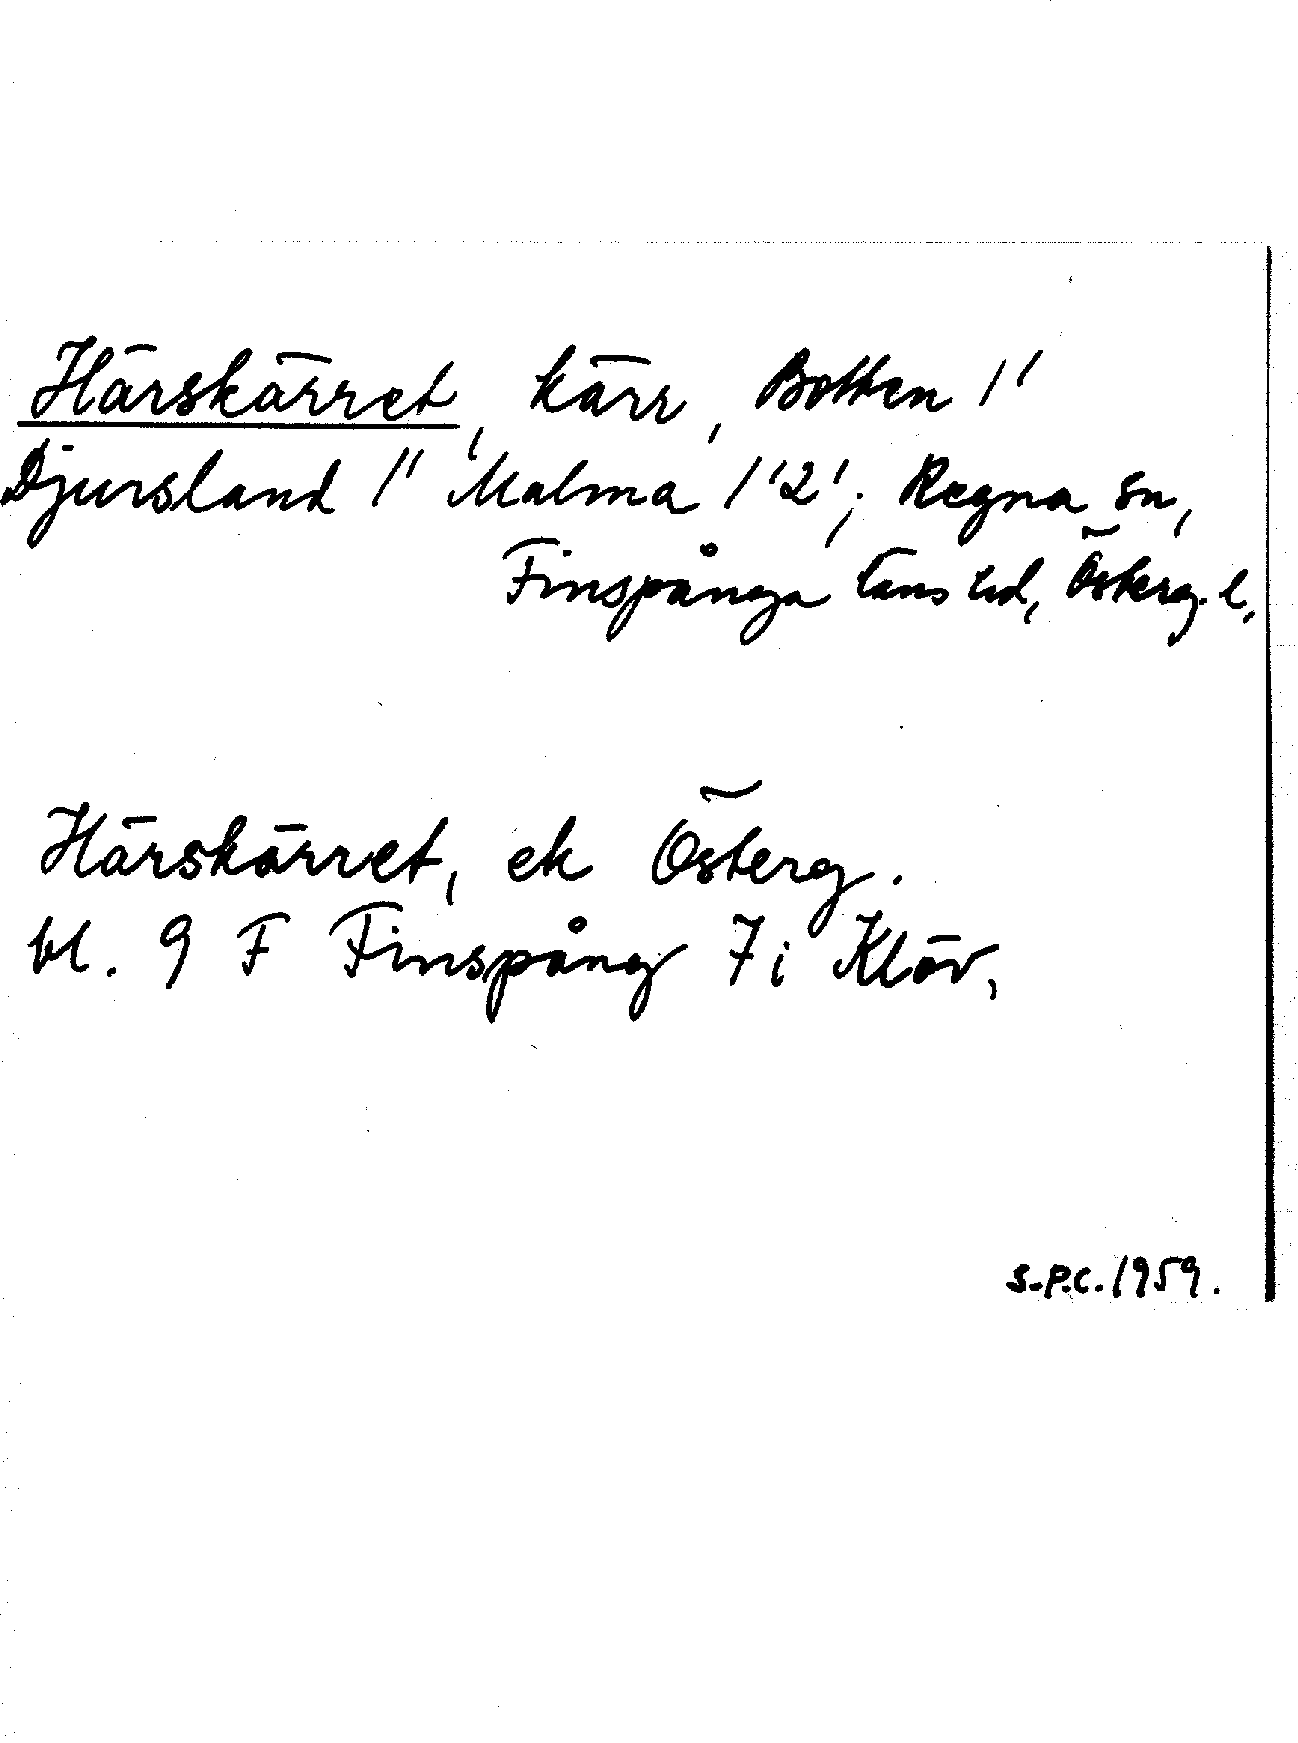 Härskärret, kärr, Botten 1'
Djursland 1" Malma 1'2'; Regna sn,
Finspånga läns hd, Österg. l.
Härskärret, ek Österg.
bl. 9 F Finspång 7 i Klöv,
S-P.C. 1959.